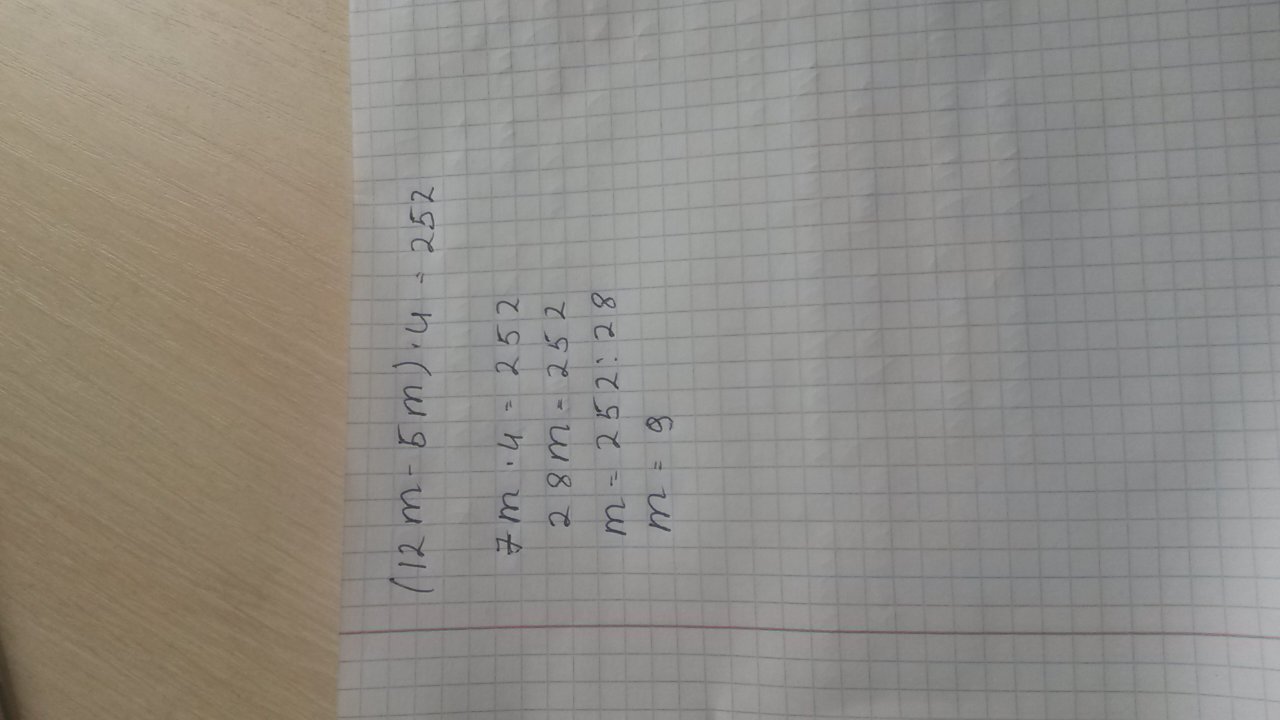 (12m - 5m) · 4 = 252
7m · 4 = 252
28m = 252
m = 252 : 28
m = 9